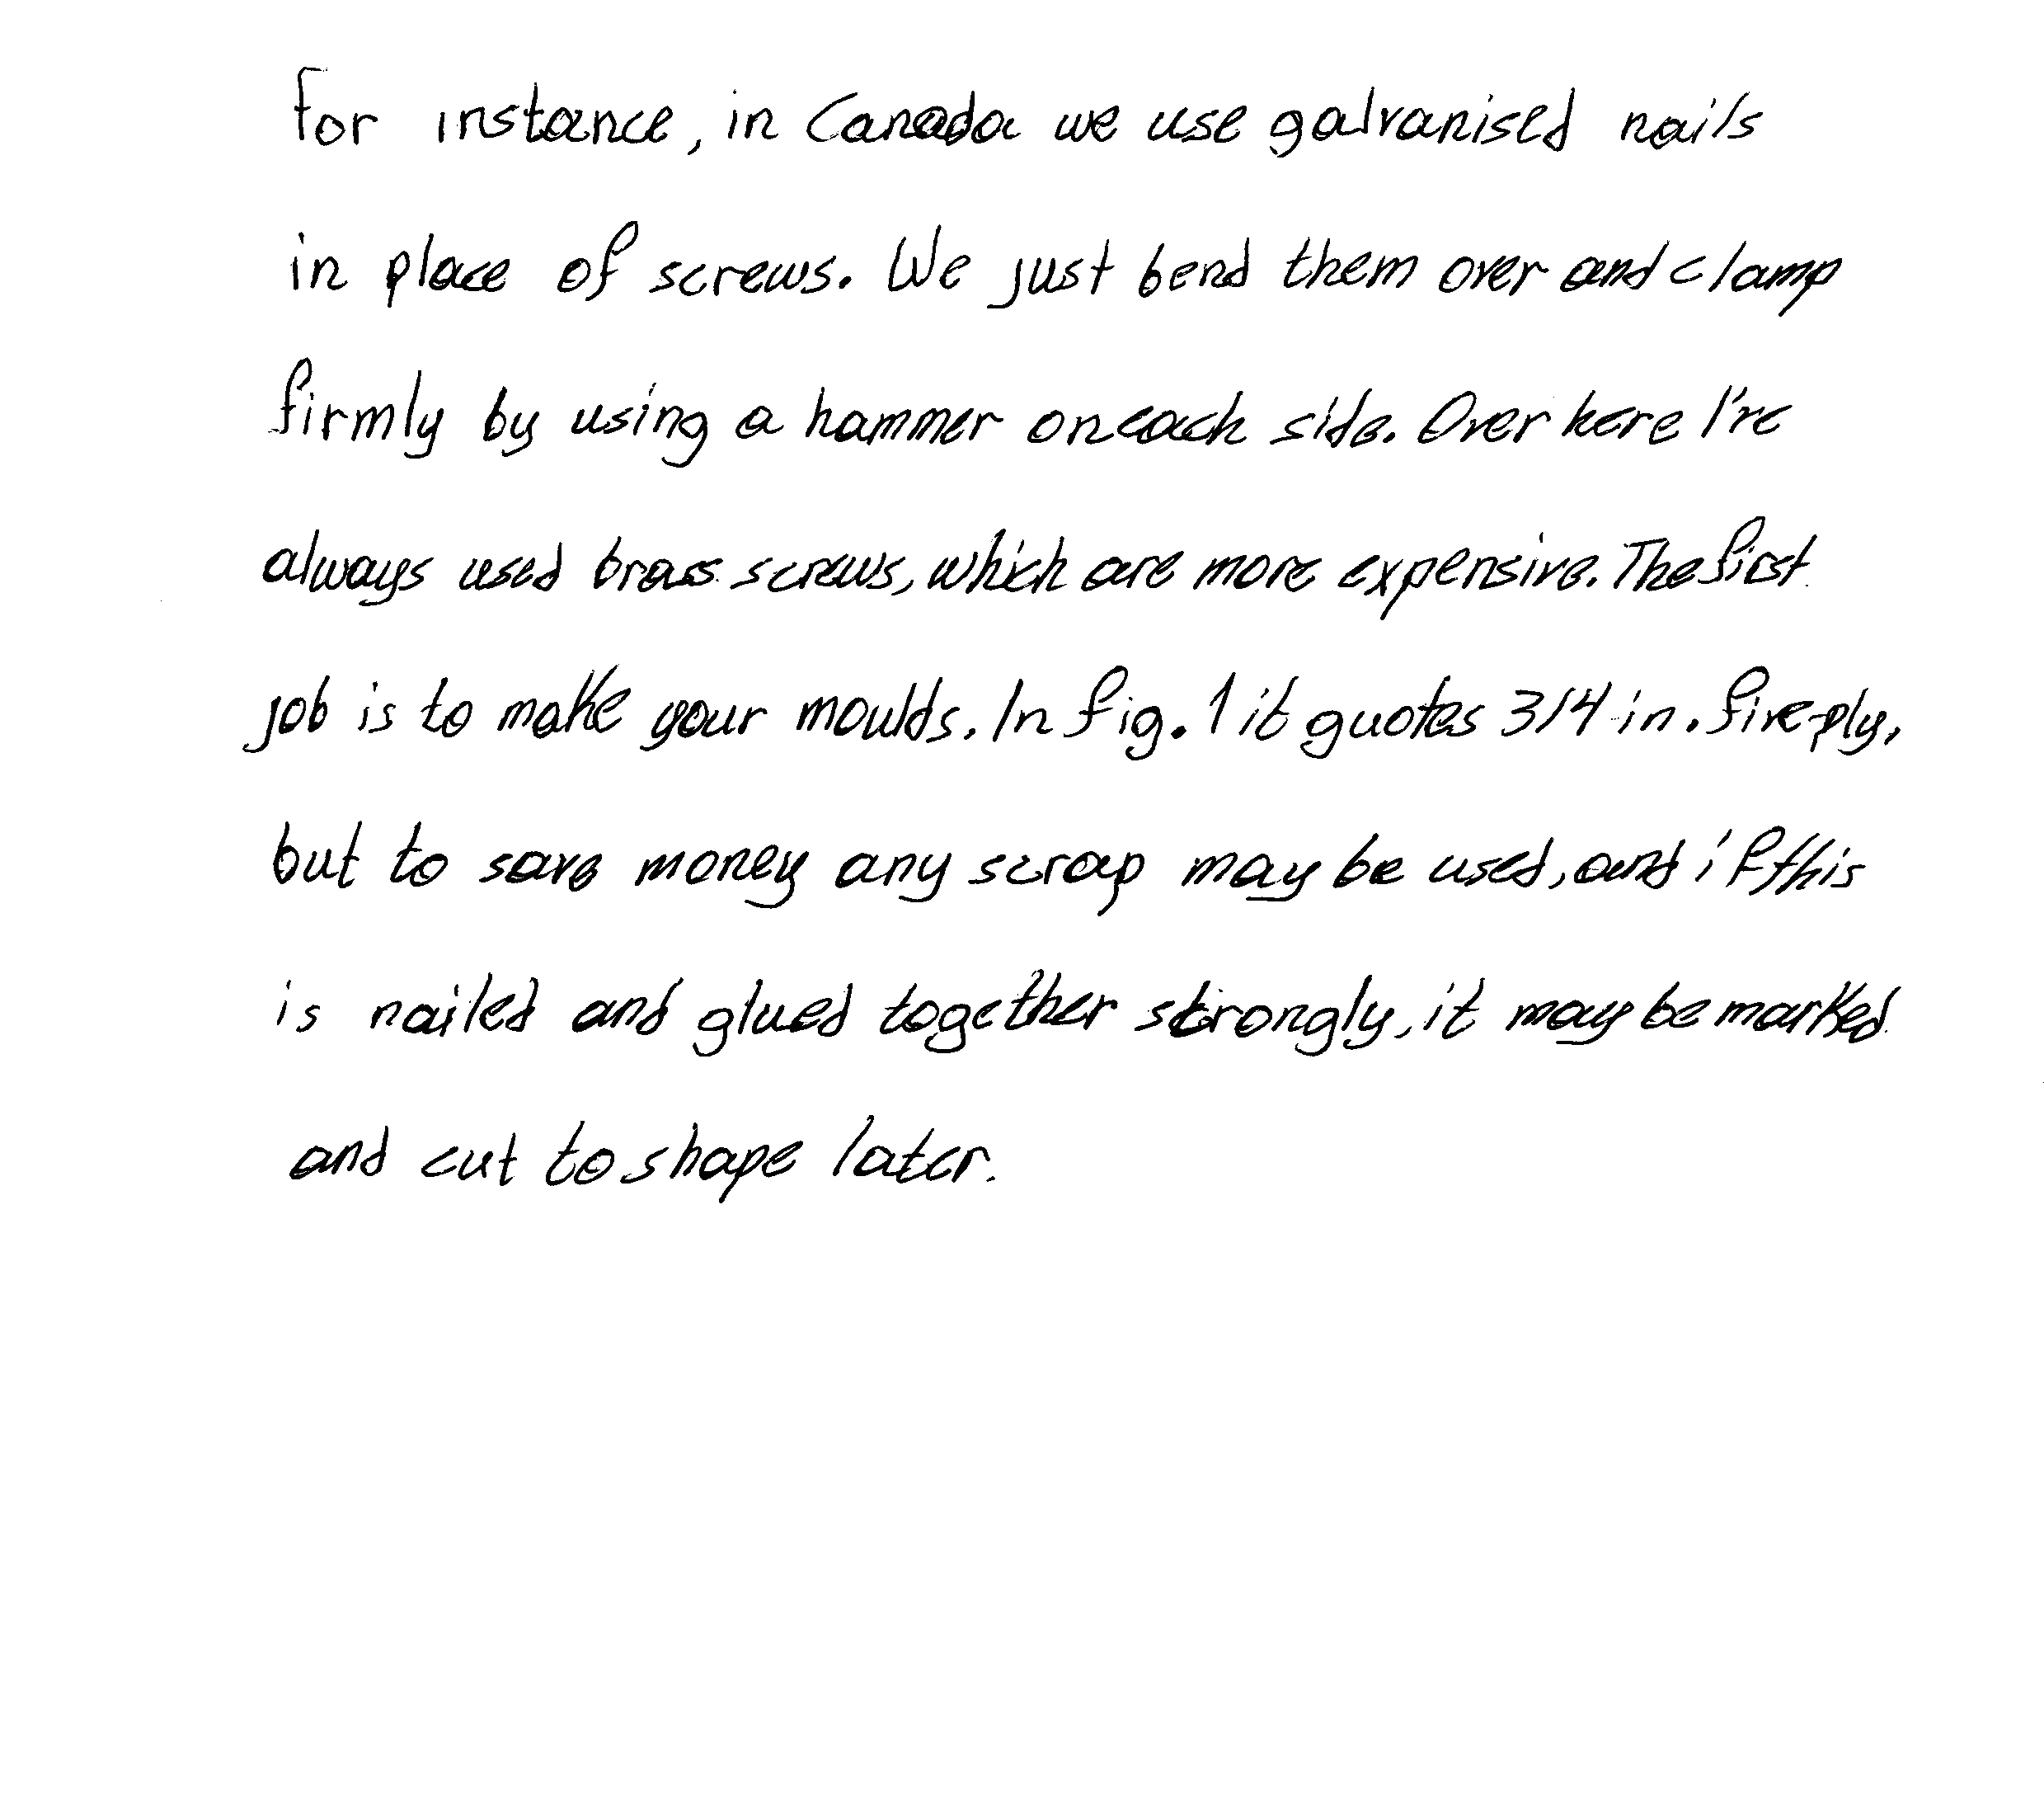 For instance, in Canada we use galvanised nails
in place of screws. We just bend them over and clamp
firmly by using a hammer on each side. Over here I've
always used brass screws, which are more expensive. The first
job is to make your moulds. In fig. 1 it quotes 3/4 in. five-ply,
but to save money any scrap may be used, and if this
is nailed and glued together strongly, it may be marked
and cut to shape later.